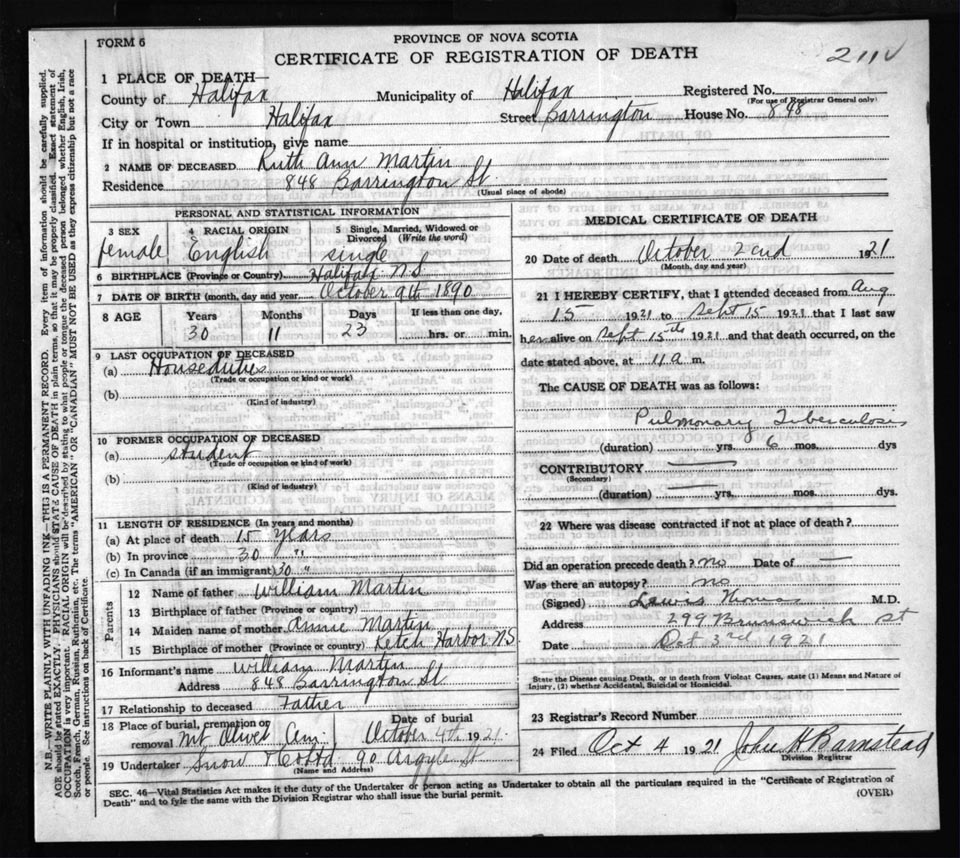 FORM 6
PROVINCE OF NOVA SCOTIA
CERTIFICATE OF REGISTRATION OF DEATH
211
1 PLACE OF DEATH—
County of Halifax Municipality of Halifax Registered No.
(For use of Registrar General only)
City or Town Halifax Street Barrington House No. 848
If in hospital or institution, give name
2 NAME OF DECEASED Ruth Ann Martin
Residence 848 Barrington St.
(Usual place of abode)
PERSONAL AND STATISTICAL INFORMATION
3 SEX 4 RACIAL ORIGIN 5 Single, Married, Widowed or Divorced (Write the word)
female English single
6 BIRTHPLACE (Province or Country) Halifax N.S.
7 DATE OF BIRTH (month, day and year) October 9th 1890
8 AGE Years Months Days If less than one day,
30 11 23 hrs. or min.
9 LAST OCCUPATION OF DECEASED
(a) Houseduties
(Trade or occupation or kind or work)
(b)
(Kind of industry)
10 FORMER OCCUPATION OF DECEASED
(a) student
(Trade or occupation or kind of work)
(b)
(Kind of industry)
11 LENGTH OF RESIDENCE (In years and months)
(a) At place of death 15 years
(b) In province 30 "
(c) In Canada (if an immigrant) 30 "
Parents
12 Name of father William Martin
13 Birthplace of father (Province or country)
14 Maiden name of mother Annie Martin
15 Birthplace of mother (Province or country) Ketch Harbor N S
16 Informant's name William Martin
Address 848 Barrington St
17 Relationship to deceased Father
18 Place of burial, cremation or removal Mt Olivet Date of burial October 4th 1921.
19 Undertaker Snow & Co Ltd 90 Argyle St
(Name and Address)
MEDICAL CERTIFICATE OF DEATH
20 Date of death October 2nd 1921
(Month, day and year)
21 I HEREBY CERTIFY, that I attended deceased from Aug
15 1921 to Sept 15 1921 that I last saw
her alive on Sept 15th 1921 and that death occurred, on the
date stated above, at 11 a m.
The CAUSE OF DEATH was as follows:
Pulmonary Tuberculosis
(duration) yrs. 6 mos. dys
CONTRIBUTORY
(Secondary)
(duration) yrs. mos. dys.
22 Where was disease contracted if not at place of death?
Did an operation precede death? no Date of —
Was there an autopsy? no
(Signed) Lewis Thomas M.D.
Address 299 Brunswick St
Date Oct 3rd 1921
State the Disease causing Death, or in death from Violent Causes, state (1) Means and Nature of
Injury, (2) whether Accidental, Suicidal or Homicidal.
23 Registrar's Record Number
24 Filed Oct 4 1921 John H Barnstead
Division Registrar
SEC. 46—Vital Statistics Act makes it the duty of the Undertaker or person acting as Undertaker to obtain all the particulars required in the "Certificate of Registration of
Death" and to fyle the same with the Division Registrar who shall issue the burial permit.
(OVER)
N.B.—WRITE PLAINLY WITH UNFADING INK—THIS IS A PERMANENT RECORD. Every item of information should be carefully supplied.
AGE should be stated EXACTLY. PHYSICIANS should STATE CAUSE OF DEATH in plain terms, so that it may be properly classified. Exact statement of
OCCUPATION is very important. RACIAL ORIGIN will be described by stating to what people or tongue the deceased person belonged, whether English, Irish,
Scotch, French, German, Russian, Ruthenian, etc. The terms "AMERICAN" OR "CANADIAN" MUST NOT BE USED as they express citizenship but not a race
or people. See instructions on back of Certificate.